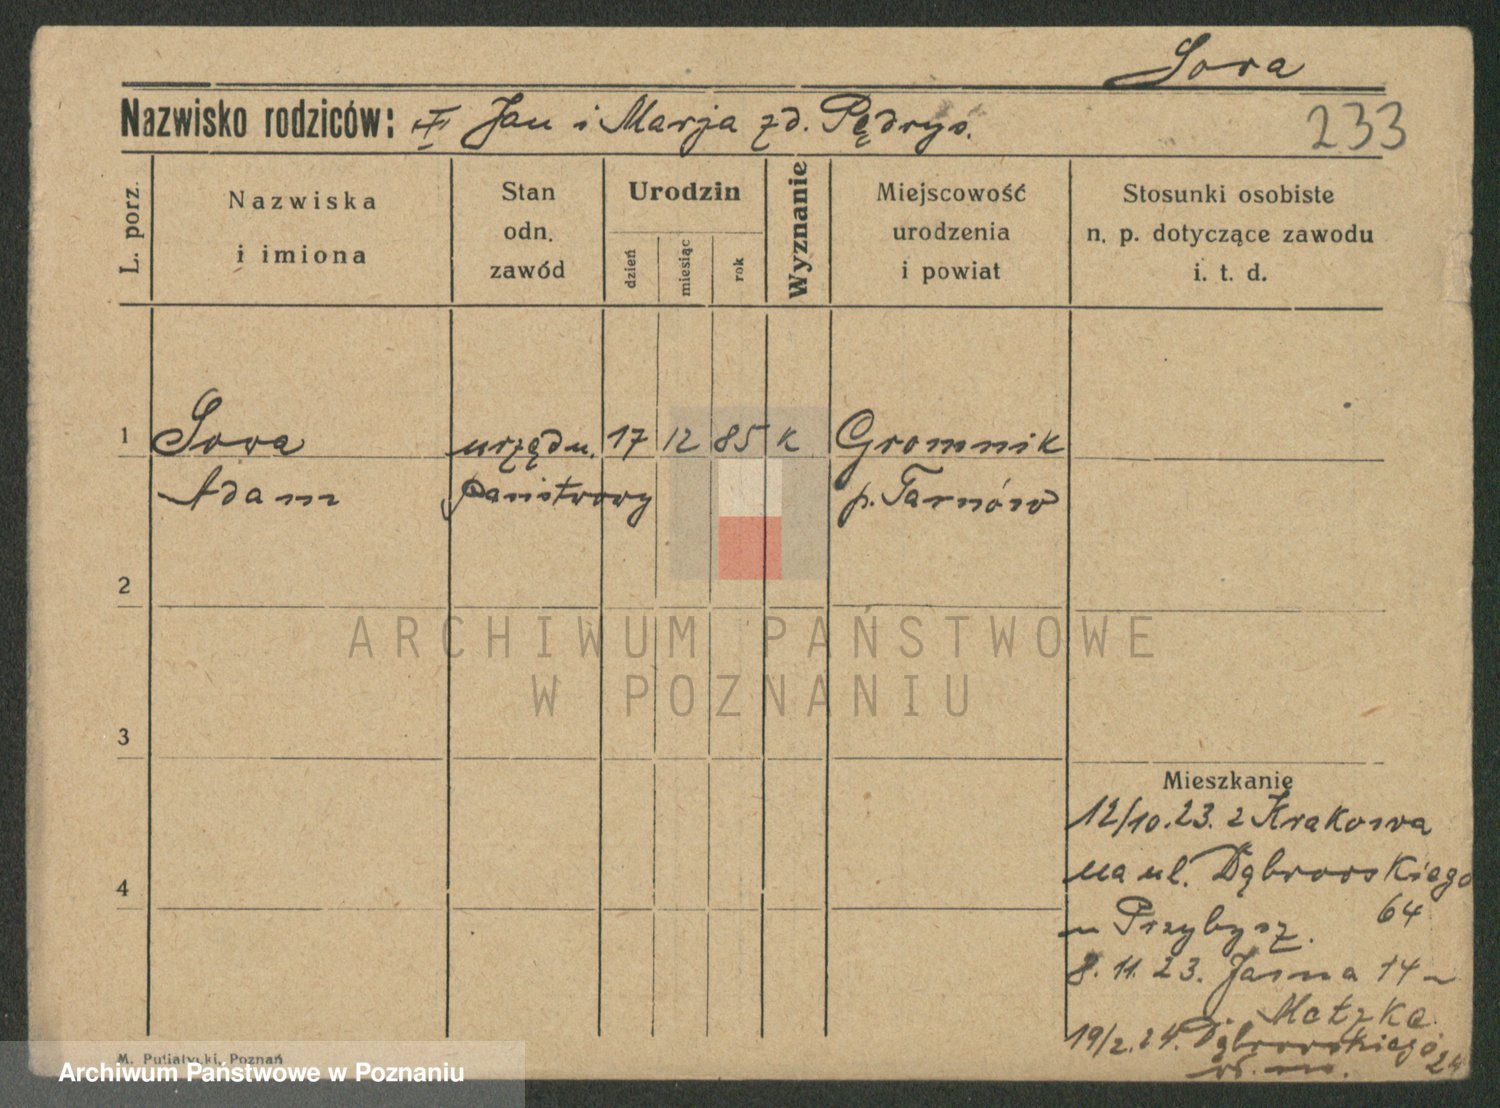 Sora
Nazwisko rodziców: Jan i Marja zd. Pędryś.
233
L. porz.
Nazwiska
i imiona
Stan
odn.
zawód
Urodzin
dzień
miesiąc
rok
Wyznanie
Miejscowość
urodzenia
i powiat
Stosunki osobiste
n. p. dotyczące zawodu
i. t. d.
1
Sora
urzędn.
17
12
85
K
Gromnik
Adam
państwowy
p. Tarnów
2
ARCHIWUM PAŃSTWOWE
W POZNANIU
3
Mieszkanie
12/10.23. z Krakowa
na ul. Dąbrowskiego
64
u Przybysz.
4
8.11.23. Jasna 14
Matzke
19/2.24. Dąbrowskiego
M. Putiatycki, Poznań
Archiwum Państwowe w Poznaniu